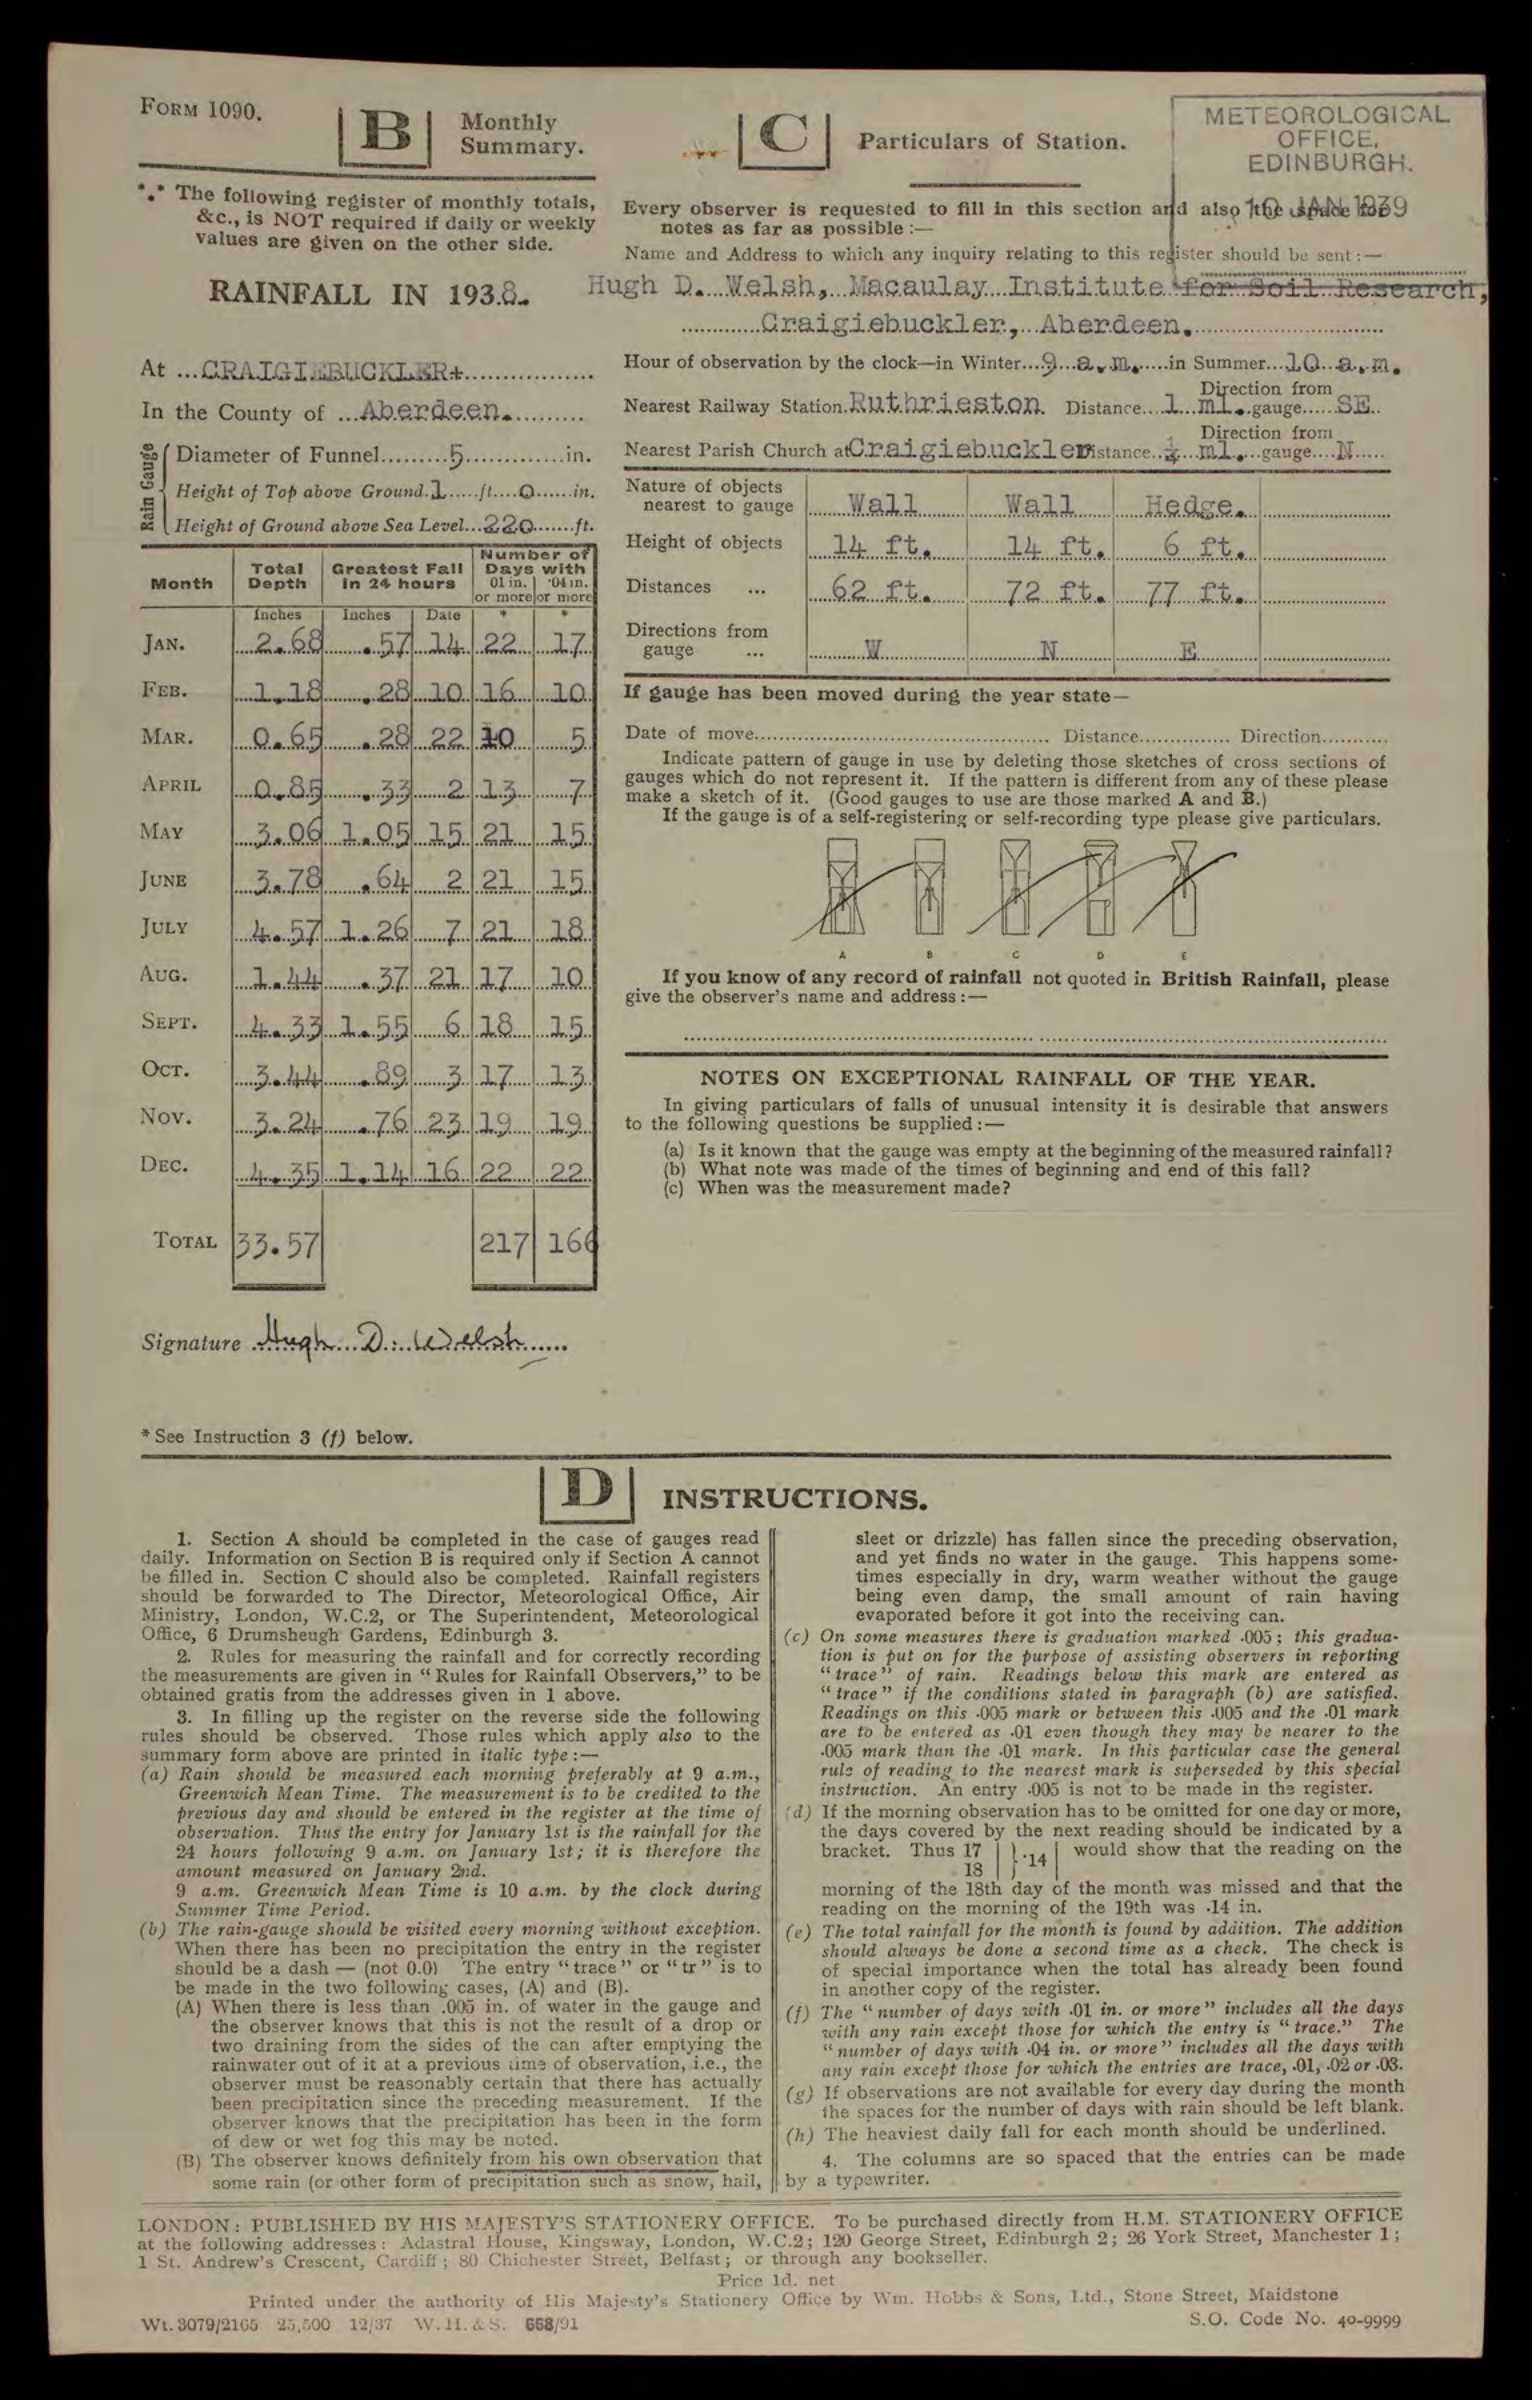 FORM 1090.
B Monthly Summary.
*.* The following register of monthly totals,
&c., is NOT required if daily or weekly
values are given on the other side.
RAINFALL IN 1938.
At ...CRAIGIEBUCKLER+...
In the County of ...Aberdeen....
Rain Gauge
Diameter of Funnel...5...in.
Height of Top above Ground.1...ft...0...in.
Height of Ground above Sea Level...220...ft.
Month | Total Depth | Greatest Fall in 24 hours | Number of Days with
01 in. or more | ·04 in. or more
Inches | Inches | Date | * | *
JAN. 2.68 .57 14 22 17
FEB. 1.18 .28 10 16 10
MAR. 0.65 .28 22 10 5
APRIL 0.85 .33 2 13 7
MAY 3.06 1.05 15 21 15
JUNE 3.78 .64 2 21 15
JULY 4.57 1.26 7 21 18
AUG. 1.44 .37 21 17 10
SEPT. 4.33 1.55 6 18 15
OCT. 3.44 .89 3 17 13
NOV. 3.24 .76 23 19 19
DEC. 4.35 1.14 16 22 22
TOTAL 33.57 217 166
Signature Hugh D. Welsh
* See Instruction 3 (f) below.
C Particulars of Station.
METEOROLOGICAL
OFFICE,
EDINBURGH.
10 JAN 1939
Every observer is requested to fill in this section and also the space for
notes as far as possible :—
Name and Address to which any inquiry relating to this register should be sent :—
Hugh D. Welsh, Macaulay Institute for Soil Research,
Craigiebuckler, Aberdeen.
Hour of observation by the clock—in Winter...9 a.m....in Summer...10 a.m.
Nearest Railway Station.Ruthrieston. Distance...1 ml. Direction from gauge...SE..
Nearest Parish Church at Craigiebuckler Distance..¼ ml. Direction from gauge...N...
Nature of objects nearest to gauge | Wall | Wall | Hedge.
Height of objects | 14 ft. | 14 ft. | 6 ft.
Distances ... | 62 ft. | 72 ft. | 77 ft.
Directions from gauge ... | W | N | E
If gauge has been moved during the year state—
Date of move... Distance... Direction...
Indicate pattern of gauge in use by deleting those sketches of cross sections of
gauges which do not represent it. If the pattern is different from any of these please
make a sketch of it. (Good gauges to use are those marked A and B.)
If the gauge is of a self-registering or self-recording type please give particulars.
A B C D E
If you know of any record of rainfall not quoted in British Rainfall, please
give the observer's name and address :—
NOTES ON EXCEPTIONAL RAINFALL OF THE YEAR.
In giving particulars of falls of unusual intensity it is desirable that answers
to the following questions be supplied :—
(a) Is it known that the gauge was empty at the beginning of the measured rainfall?
(b) What note was made of the times of beginning and end of this fall?
(c) When was the measurement made?
D INSTRUCTIONS.
1. Section A should be completed in the case of gauges read
daily. Information on Section B is required only if Section A cannot
be filled in. Section C should also be completed. Rainfall registers
should be forwarded to The Director, Meteorological Office, Air
Ministry, London, W.C.2, or The Superintendent, Meteorological
Office, 6 Drumsheugh Gardens, Edinburgh 3.
2. Rules for measuring the rainfall and for correctly recording
the measurements are given in “ Rules for Rainfall Observers,” to be
obtained gratis from the addresses given in 1 above.
3. In filling up the register on the reverse side the following
rules should be observed. Those rules which apply also to the
summary form above are printed in italic type :—
(a) Rain should be measured each morning preferably at 9 a.m.,
Greenwich Mean Time. The measurement is to be credited to the
previous day and should be entered in the register at the time of
observation. Thus the entry for January 1st is the rainfall for the
24 hours following 9 a.m. on January 1st; it is therefore the
amount measured on January 2nd.
9 a.m. Greenwich Mean Time is 10 a.m. by the clock during
Summer Time Period.
(b) The rain-gauge should be visited every morning without exception.
When there has been no precipitation the entry in the register
should be a dash — (not 0.0) The entry “ trace ” or “ tr ” is to
be made in the two following cases, (A) and (B).
(A) When there is less than .005 in. of water in the gauge and
the observer knows that this is not the result of a drop or
two draining from the sides of the can after emptying the
rainwater out of it at a previous time of observation, i.e., the
observer must be reasonably certain that there has actually
been precipitation since the preceding measurement. If the
observer knows that the precipitation has been in the form
of dew or wet fog this may be noted.
(B) The observer knows definitely from his own observation that
some rain (or other form of precipitation such as snow, hail,
sleet or drizzle) has fallen since the preceding observation,
and yet finds no water in the gauge. This happens some-
times especially in dry, warm weather without the gauge
being even damp, the small amount of rain having
evaporated before it got into the receiving can.
(c) On some measures there is graduation marked .005 ; this gradua-
tion is put on for the purpose of assisting observers in reporting
“ trace ” of rain. Readings below this mark are entered as
“ trace ” if the conditions stated in paragraph (b) are satisfied.
Readings on this .005 mark or between this .005 and the .01 mark
are to be entered as .01 even though they may be nearer to the
.005 mark than the .01 mark. In this particular case the general
rule of reading to the nearest mark is superseded by this special
instruction. An entry .005 is not to be made in the register.
(d) If the morning observation has to be omitted for one day or more,
the days covered by the next reading should be indicated by a
bracket. Thus 17 18 } .14 would show that the reading on the
morning of the 18th day of the month was missed and that the
reading on the morning of the 19th was .14 in.
(e) The total rainfall for the month is found by addition. The addition
should always be done a second time as a check. The check is
of special importance when the total has already been found
in another copy of the register.
(f) The “ number of days with .01 in. or more ” includes all the days
with any rain except those for which the entry is “ trace.” The
“ number of days with .04 in. or more ” includes all the days with
any rain except those for which the entries are trace, .01, .02 or .03.
(g) If observations are not available for every day during the month
the spaces for the number of days with rain should be left blank.
(h) The heaviest daily fall for each month should be underlined.
4. The columns are so spaced that the entries can be made
by a typewriter.
LONDON : PUBLISHED BY HIS MAJESTY'S STATIONERY OFFICE. To be purchased directly from H.M. STATIONERY OFFICE
at the following addresses : Adastral House, Kingsway, London, W.C.2 ; 120 George Street, Edinburgh 2 ; 26 York Street, Manchester 1 ;
1 St. Andrew's Crescent, Cardiff ; 80 Chichester Street, Belfast ; or through any bookseller.
Price 1d. net
Printed under the authority of His Majesty's Stationery Office by Wm. Hobbs & Sons, Ltd., Stone Street, Maidstone
Wt. 3079/2165 25,500 12/37 W. H. & S. 668/91
S.O. Code No. 40-9999